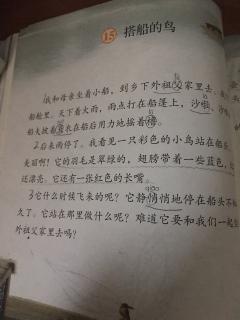 15 搭船的鸟
1我和母亲坐着小船，到乡下外祖父家里去。
船舱里。天下着大雨，雨点打在船篷上，沙啦、沙啦
船夫披着蓑衣在船后用力地摇着橹。
2后来雨停了。我看见一只彩色的小鸟站在船头
美丽啊！它的羽毛是翠绿的，翅膀带着一些蓝色，
还漂亮。它还有一张红色的长嘴。
3它什么时候飞来的呢？它静悄悄地停在船头不
久了。它站在那里做什么呢？难道它要和我们一起
外祖父家里去吗？